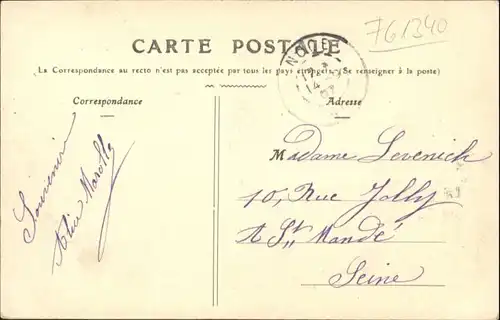 761340
CARTE POSTALE
(La Correspondance au recto n'est pas acceptée par tous les pays étrangers. (Se renseigner à la poste)
Correspondance
Adresse
Souvenir
Madame Levenich
10, Rue Jolly
A St Mandé
Seine